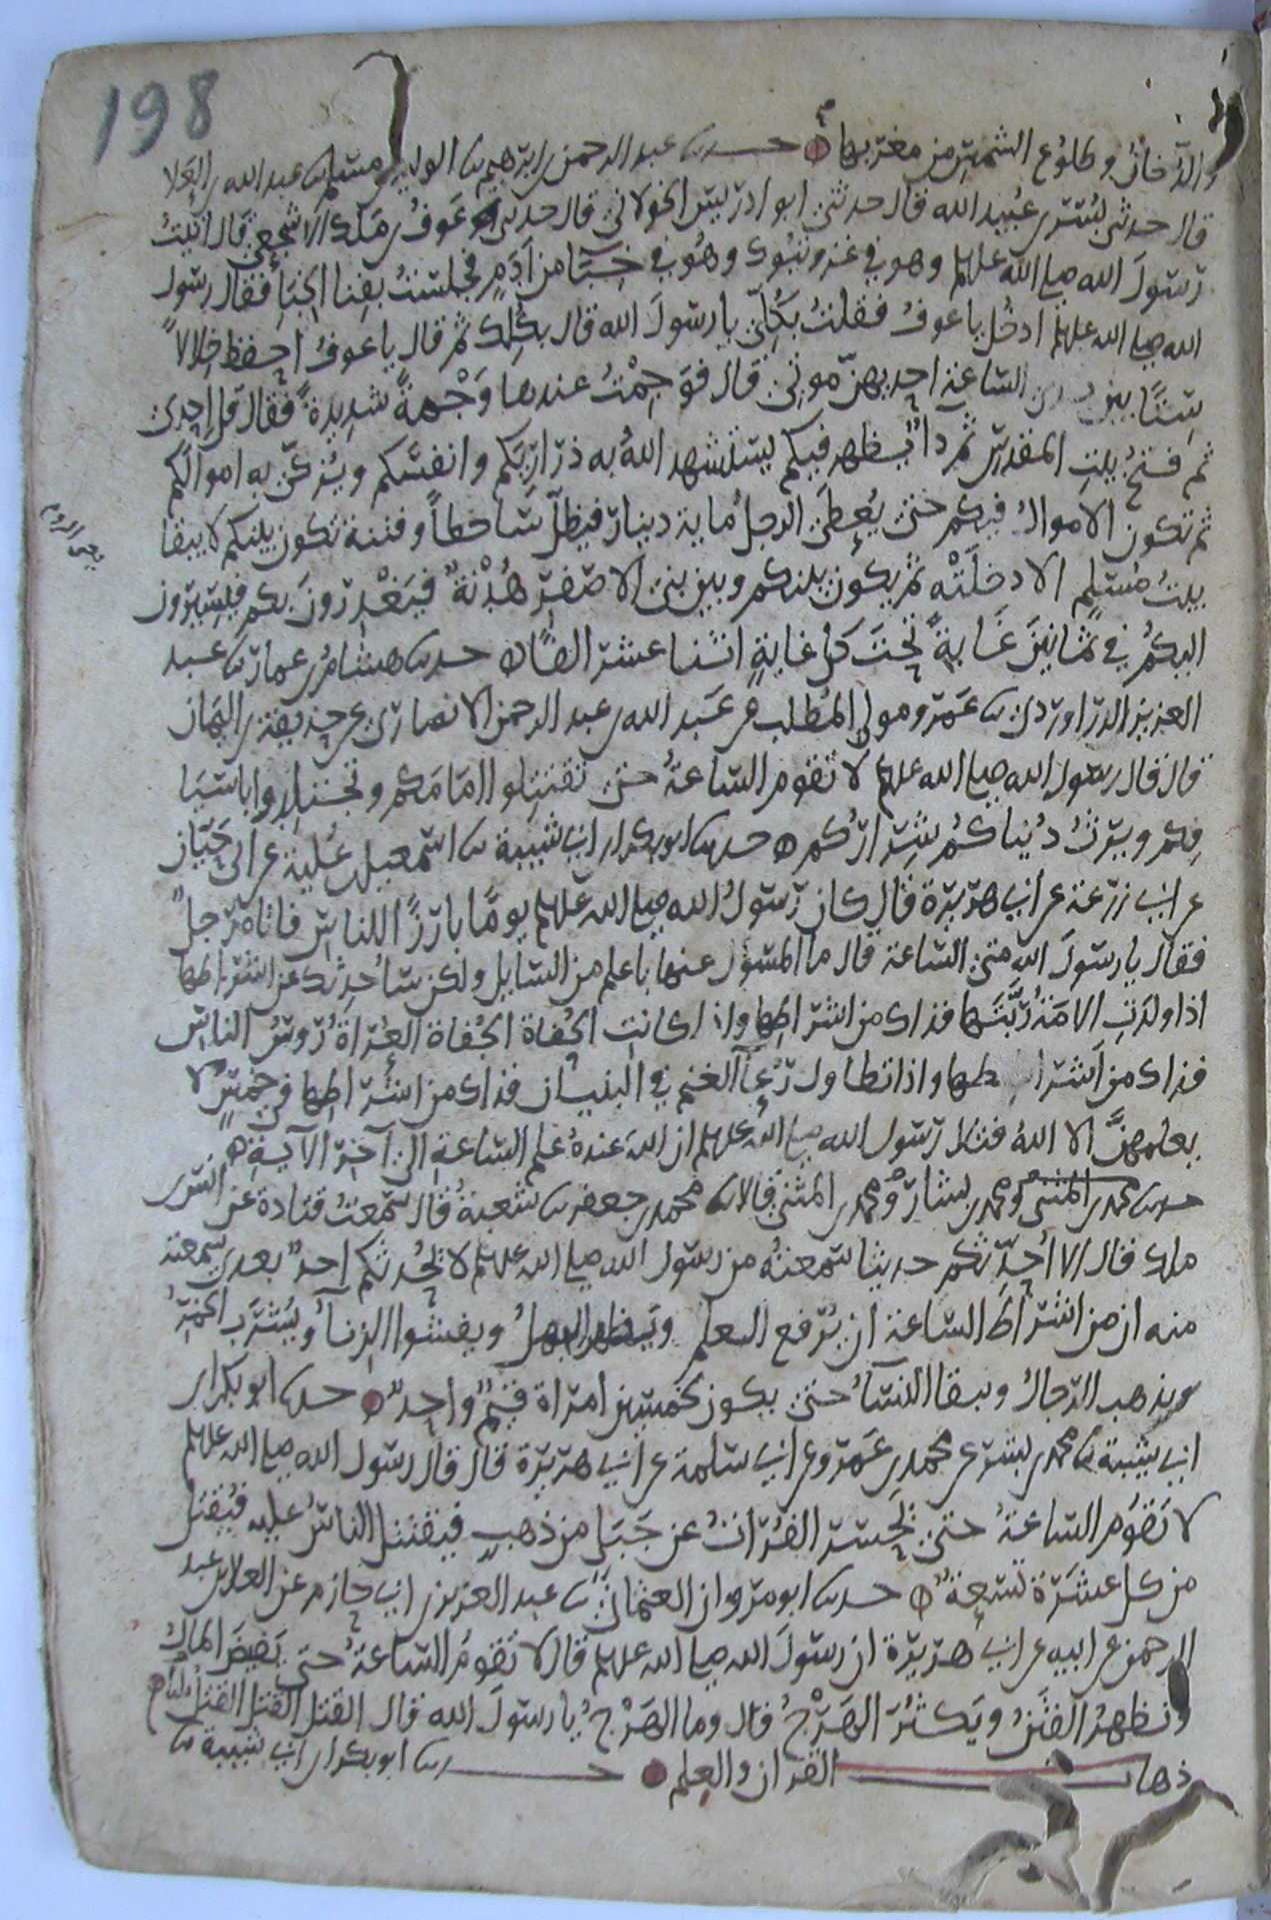 198
والدخان وطلوع الشمس من مغربها حدثنا عبد الرحمن بن ابرهيم نا الوليد بن مسلم نا عبد الله بن العلا
قال حدثني بسر بن عبيد الله قال حدثني ابو ادريس الخولاني قال حدثني عوف بن ملك الاشجعي قال اتيت
رسول الله صلى الله عليه وسلم وهو في غزوة تبوك وهو في خبا من ادم فجلست بفنا الخبا فقال رسول
الله صلى الله عليه وسلم ادخل يا عوف فقلت بكلي يا رسول الله قال بكلك ثم قال يا عوف احفظ خلالا
ستا بين يدي الساعة احديهن موتي قال فوجمت عندها وجمة شديدة فقال قل احدى
ثم فتح بيت المقدس ثم دا يظهر فيكم يستشهد الله به ذراريكم وانفسكم ويزكي به اموالكم
ثم تكون الاموال فيكم حتى يعطى الرجل ماية دينار فيظل ساخطا وفتنة تكون بينكم لا يبقا
بيت مسلم الا دخلته ثم يكون بينكم وبين بني الاصفر هدنة فيغدرون بكم فيسيرون
يعني الروم
اليكم في ثمانين غاية تحت كل غاية اثنا عشر الفا حدثنا هشام بن عمار نا عبد
العزيز الدراوردي نا عمرو مولى المطلب عن عبد الله بن عبد الرحمن الانصاري عن حذيفة بن اليمان
قال قال رسول الله صلى الله عليه وسلم لا تقوم الساعة حتى تقتتلوا امامكم وتجتلدوا باسيا
فكم ويرث دنياكم شراركم حدثنا ابو بكر بن ابي شيبة نا اسمعيل بن علية عن ابي حيان
عن ابي زرعة عن ابي هريرة قال كان رسول الله صلى الله عليه وسلم يوما بارزا للناس فاتاه رجل
فقال يا رسول الله متى الساعة قال ما المسؤل عنها باعلم من السايل ولكن ساحدثك عن اشراطها
اذا ولدت الامة ربتها فذاك من اشراطها واذا كانت الحفاة الجفاة العراة رؤس الناس
فذاك من اشراطها واذا تطاول رعا الغنم في البنيان فذاك من اشراطها في خمس لا
يعلمهن الا الله فتلا رسول الله صلى الله عليه وسلم ان الله عنده علم الساعة الى آخر الآية
حدثنا محمد بن المثنى ومحمد بن بشار ومحمد بن المثنى قالا نا محمد بن جعفر نا شعبة قال سمعت قتادة عن انس بن
ملك قال الا احدثكم حديثا سمعته من رسول الله صلى الله عليه وسلم لا يحدثكم احد بعدي سمعته
منه ان من اشراط الساعة ان يرفع العلم ويظهر الجهل ويفشوا الزنا ويشرب الخمر
ويذهب الرجال ويبقا النسآ حتى يكون لخمسين امراة قيم واحد حدثنا ابو بكر بن
ابي شيبة نا محمد بن بشر عن محمد بن عمرو عن ابي سلمة عن ابي هريرة قال قال رسول الله صلى الله عليه وسلم
لا تقوم الساعة حتى يحسر الفرات عن جبل من ذهب فيقتتل الناس عليه فيقتل
من كل عشرة تسعة حدثنا ابو مروان العثماني نا عبد العزيز بن ابي حازم عن العلا بن عبد
الرحمن عن ابيه عن ابي هريرة ان رسول الله صلى الله عليه وسلم قال لا تقوم الساعة حتى يفيض المال
وتظهر الفتن ويكثر الهرج قال وما الهرج يا رسول الله قال القتل القتل القتل
ذهاب القران والعلم حدثنا ابو بكر بن ابي شيبة نا